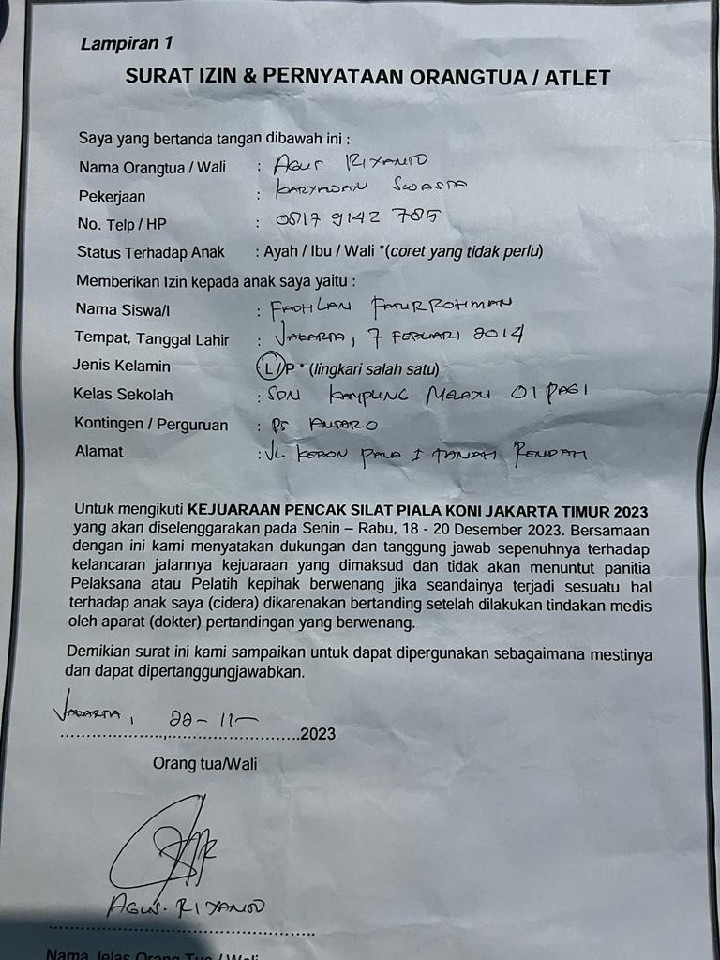 Lampiran 1
SURAT IZIN & PERNYATAAN ORANGTUA / ATLET
Saya yang bertanda tangan dibawah ini :
Nama Orangtua / Wali : AGUS RIYANTO
Pekerjaan : KARYAWAN SWASTA
No. Telp / HP : 0817 9142 785
Status Terhadap Anak : Ayah / Ibu / Wali *(coret yang tidak perlu)
Memberikan Izin kepada anak saya yaitu :
Nama Siswa/I : FADHLAN FATURROHMAN
Tempat, Tanggal Lahir : JAKARTA, 7 FEBUARI 2014
Jenis Kelamin : L/P * (lingkari salah satu)
Kelas Sekolah : SDN KAMPUNG MELAYU 01 PAGI
Kontingen / Perguruan : PS
Alamat : JL. KEBON PALA I TANAH RENDAH
Untuk mengikuti KEJUARAAN PENCAK SILAT PIALA KONI JAKARTA TIMUR 2023
yang akan diselenggarakan pada Senin – Rabu, 18 - 20 Desember 2023. Bersamaan
dengan ini kami menyatakan dukungan dan tanggung jawab sepenuhnya terhadap
kelancaran jalannya kejuaraan yang dimaksud dan tidak akan menuntut panitia
Pelaksana atau Pelatih kepihak berwenang jika seandainya terjadi sesuatu hal
terhadap anak saya (cidera) dikarenakan bertanding setelah dilakukan tindakan medis
oleh aparat (dokter) pertandingan yang berwenang.
Demikian surat ini kami sampaikan untuk dapat dipergunakan sebagaimana mestinya
dan dapat dipertanggungjawabkan.
JAKARTA, 22-11-
2023
Orang tua/Wali
AGUS RIYANTO
Nama Jelas Orang Tua / Wali